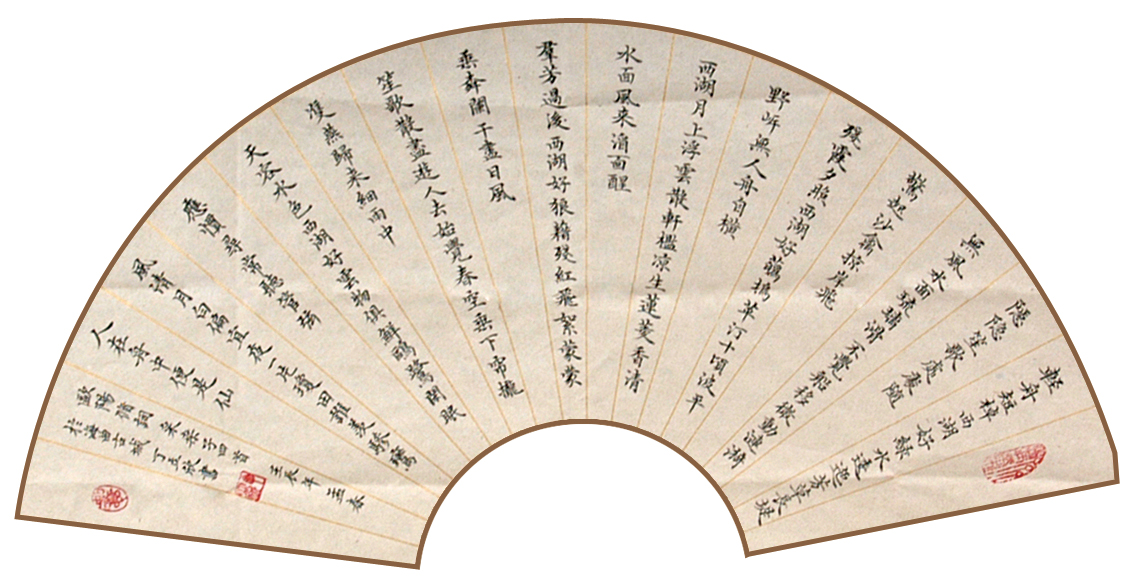 輕舟短棹西湖好綠水逶迤芳草長堤
隱隱笙歌處處隨
無風水面琉璃滑不覺船移微動漣漪
驚起沙禽掠岸飛
殘霞夕照西湖好蘋塢華汀十頃波平
野岍無人舟自橫
西湖月上浮雲散軒檻凉生蓮芰香清
水面風来酒面醒
羣芳過後西湖好狼籍殘紅飛絮蒙蒙
垂闌干盡日風
笙歌散盡遊人去始覺春空垂下帘櫳
雙燕歸来細雨中
天容水色西湖好雲物俱鮮鷗鷺閒眠
應慣尋常聽管絃
風清月白偏宜夜一片瓊田誰羨驂鸞
人在舟中便是仙
歐陽脩詞采桑子四首壬辰年孟春
於古城丁書